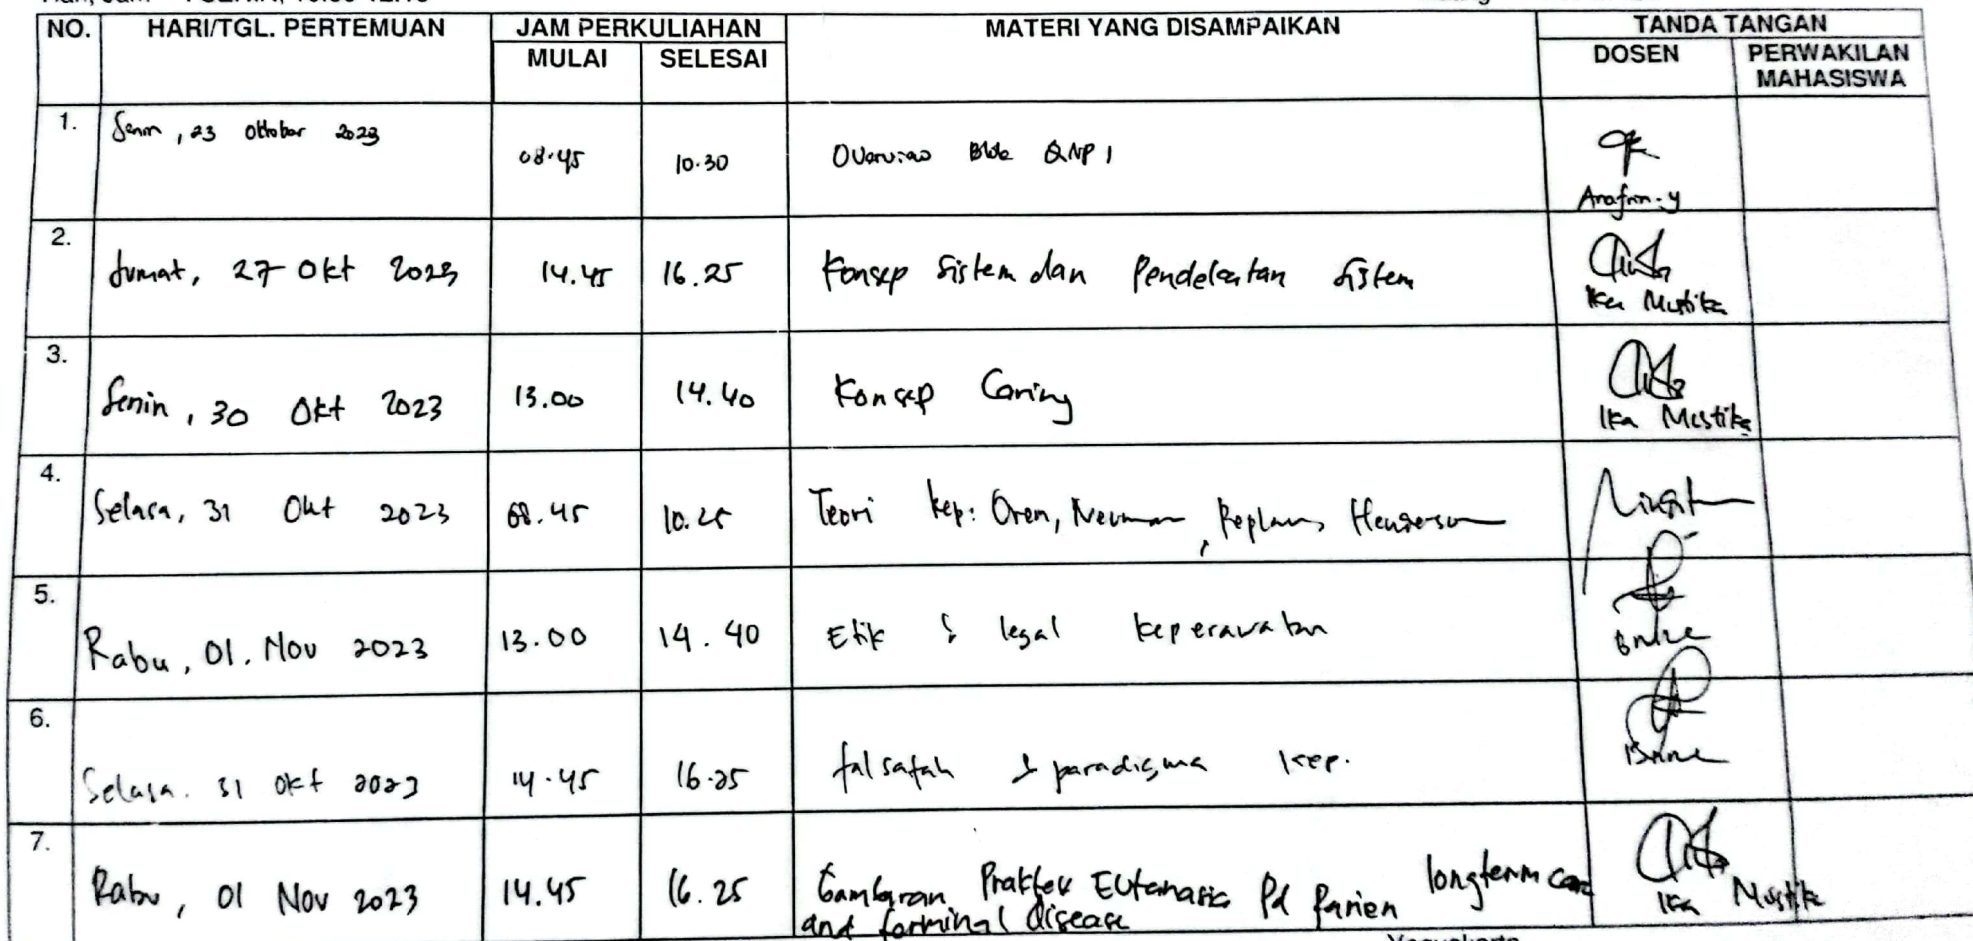 NO. HARI/TGL. PERTEMUAN JAM PERKULIAHAN MATERI YANG DISAMPAIKAN TANDA TANGAN
MULAI SELESAI DOSEN PERWAKILAN MAHASISWA
1. Senin, 23 Oktober 2023 08.45 10.30 Overview Blok QNP 1
2. Jumat, 27 Okt 2023 14.45 16.25 Konsep Sistem dan Pendekatan Sistem Ika Mustika
3. Senin, 30 Okt 2023 13.00 14.40 Konsep Caring Ika Mustika
4. Selasa, 31 Okt 2023 08.45 10.25 Teori kep: Orem, Neuman, Peplau, Henderson
5. Rabu, 01. Nov 2023 13.00 14.40 Etik & legal keperawatan
6. Selasa. 31 Okt 2023 14.45 16.25 falsafah & paradigma kep.
7. Rabu, 01 Nov 2023 14.45 16.25 Gambaran Praktek Eutanasia Pd Pasien longterm care Ika Mustika
and terminal disease